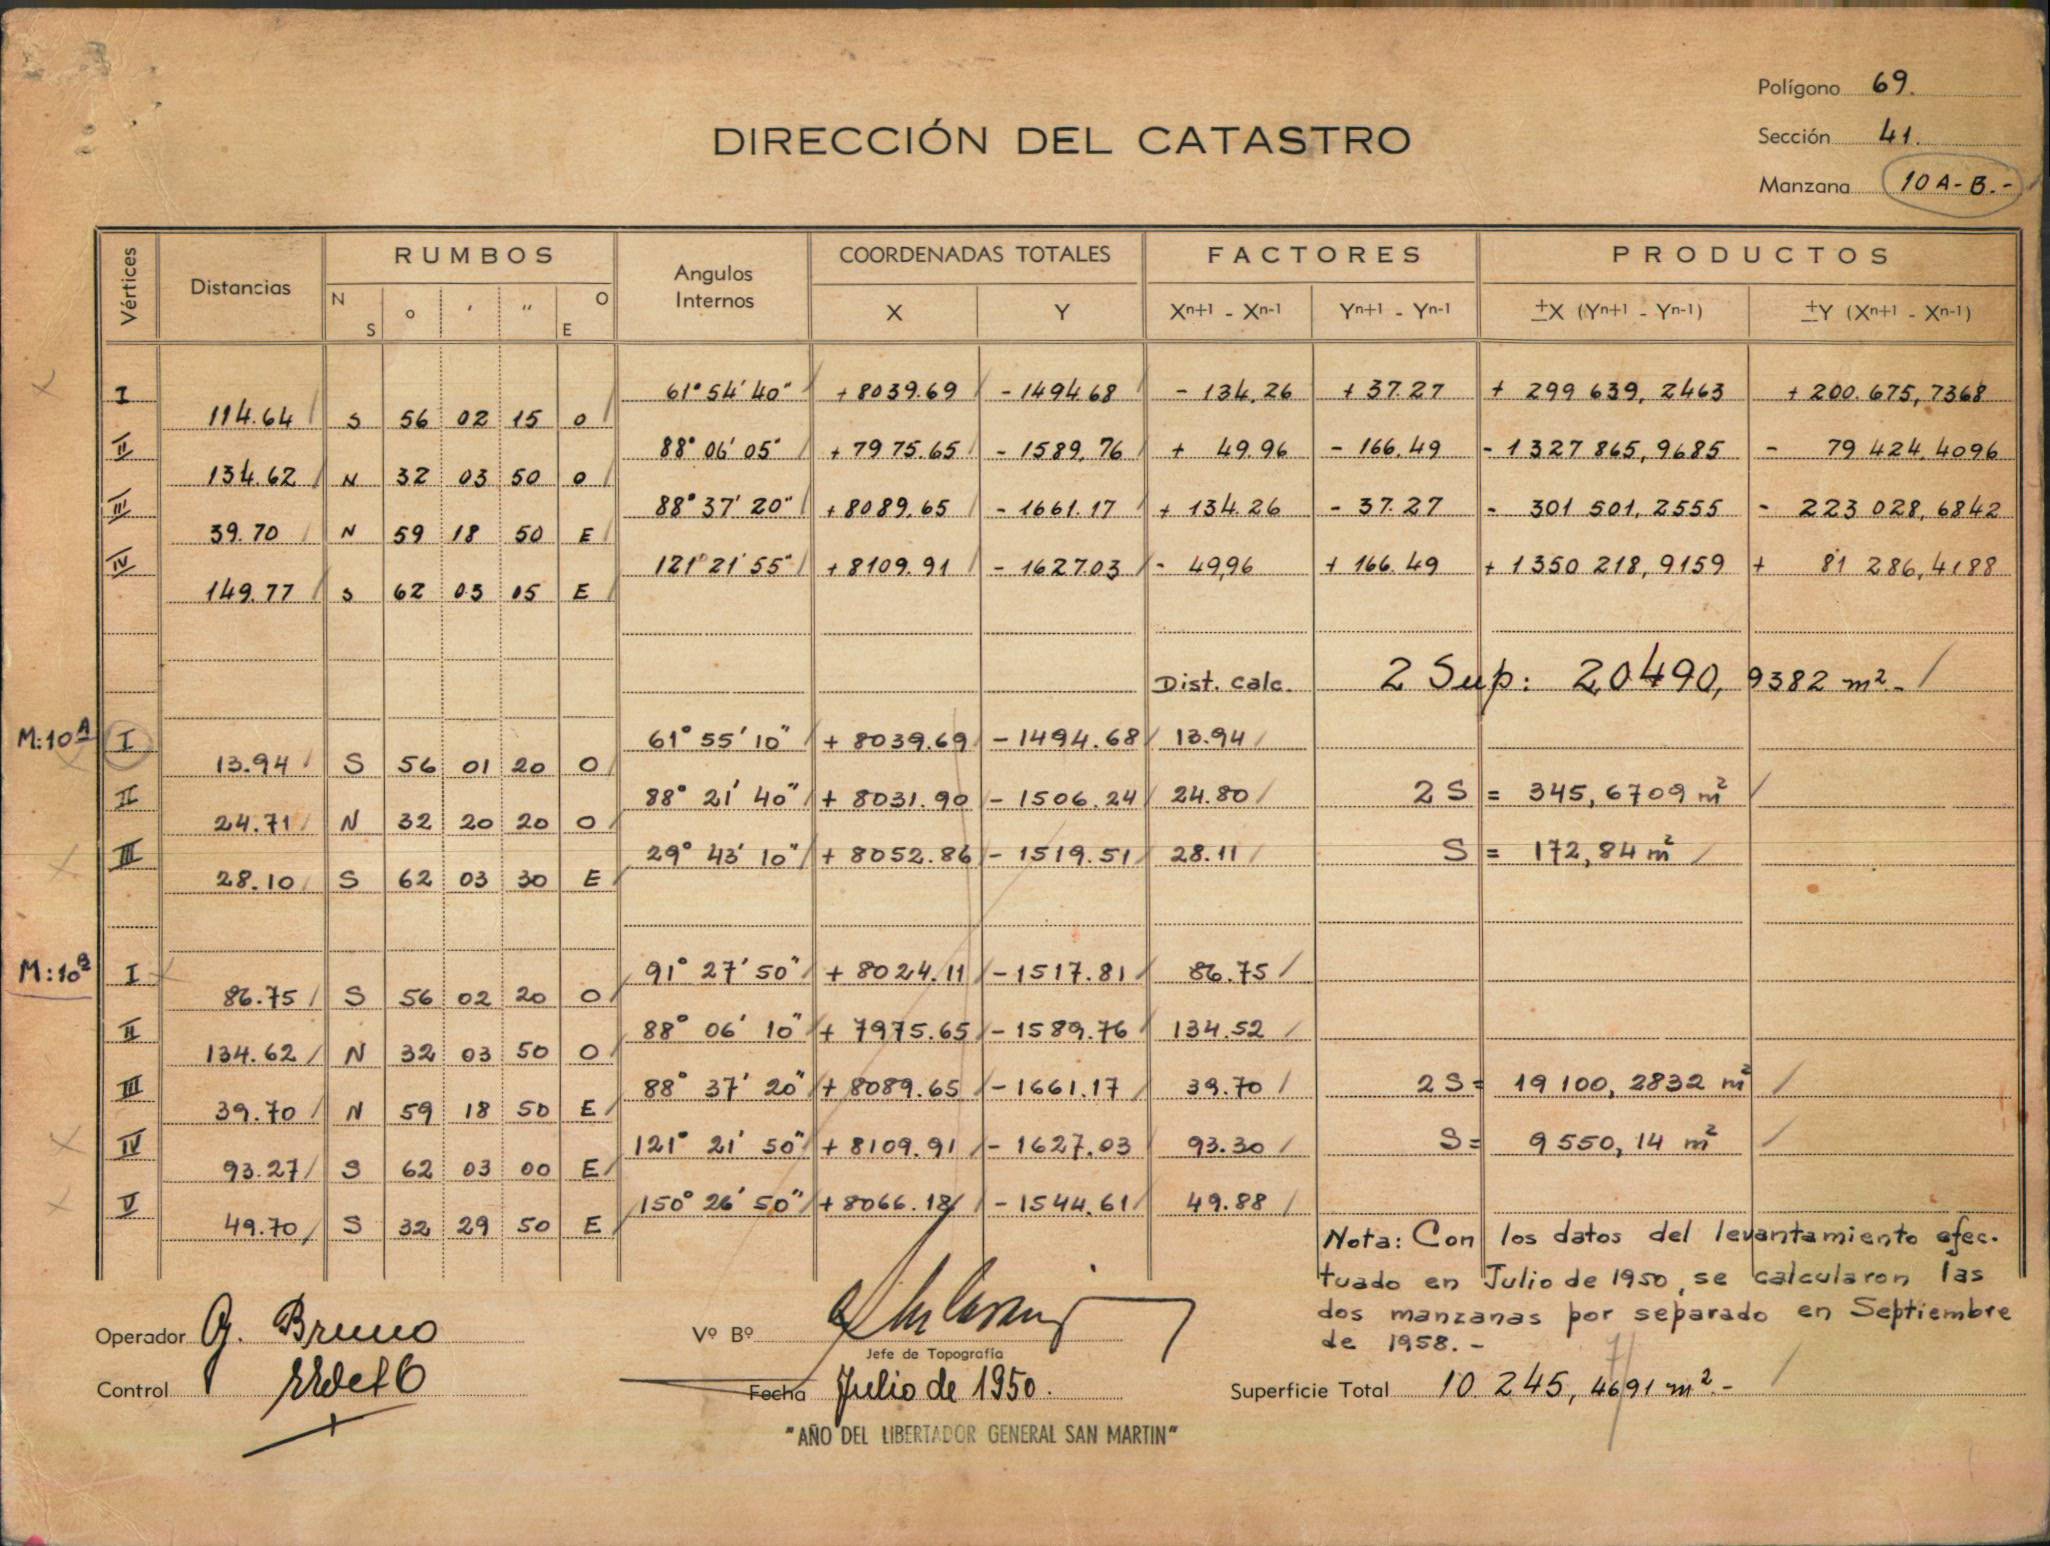 Polígono 69.
Sección 41.
Manzana 10 A-B.-
DIRECCIÓN DEL CATASTRO
Vértices Distancias RUMBOS Angulos Internos COORDENADAS TOTALES FACTORES PRODUCTOS
N S o ' " O E X Y Xn+1 - Xn-1 Yn+1 - Yn-1 ±X (Yn+1 - Yn-1) ±Y (Xn+1 - Xn-1)
I 61° 54' 40" + 8039.69 - 1494.68 - 134,26 + 37.27 + 299 639, 2463 + 200.675,7368
114.64 S 56 02 15 O
II 88° 06' 05" + 7975.65 - 1589,76 + 49.96 - 166.49 - 1327 865,9685 - 79 424,4096
134.62 N 32 03 50 O
III 88° 37' 20" + 8089.65 - 1661.17 + 134.26 - 37.27 - 301 501,2555 - 223 028,6842
39.70 N 59 18 50 E
IV 121° 21' 55" + 8109.91 - 1627.03 - 49,96 + 166.49 + 1350 218,9159 + 81 286,4188
149.77 S 62 03 15 E
Dist. calc. 2 Sup: 20490, 9382 m².-
M:10A I 61° 55' 10" + 8039.69 - 1494.68 13.94
13.94 S 56 01 20 O
II 88° 21' 40" + 8031.90 - 1506.24 24.80 2 S = 345,6709 m²
24.71 N 32 20 20 O
III 29° 43' 10" + 8052.86 - 1519.51 28.11 S = 172,84 m²
28.10 S 62 03 30 E
M:10B I 91° 27' 50" + 8024.11 - 1517.81 86.75
86.75 S 56 02 20 O
II 88° 06' 10" + 7975.65 - 1589.76 134.52
134.62 N 32 03 50 O
III 88° 37' 20" + 8089.65 - 1661.17 39.70 2 S = 19 100, 2832 m²
39.70 N 59 18 50 E
IV 121° 21' 50" + 8109.91 - 1627.03 93.30 S = 9 550, 14 m²
93.27 S 62 03 00 E
V 150° 26' 50" + 8066.18 - 1544.61 49.88
49.70 S 32 29 50 E
Nota: Con los datos del levantamiento efec-
tuado en Julio de 1950, se calcularon las
dos manzanas por separado en Septiembre
de 1958.-
Operador G. Bruno
Vº Bº
Jefe de Topografía
Control
Fecha Julio de 1950.
Superficie Total 10 245, 4691 m².-
"AÑO DEL LIBERTADOR GENERAL SAN MARTIN"